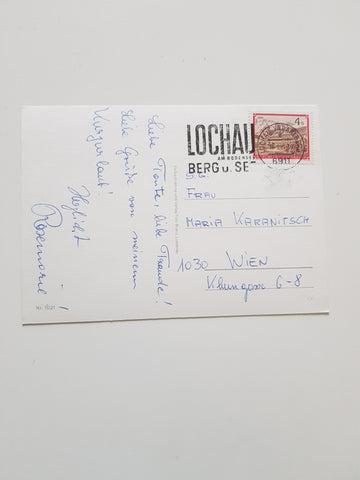 Liebe Tante, liebe Freude!
Liebe Grüße von meinem
Kurzurlaub!
Herzlichst
Rosemarie
LOCHAU
AM BODENSEE
BERG u. SE-
4 S
6911
FRAU
MARIA KARANITSCH
1030 WIEN
Klimgasse 6-8